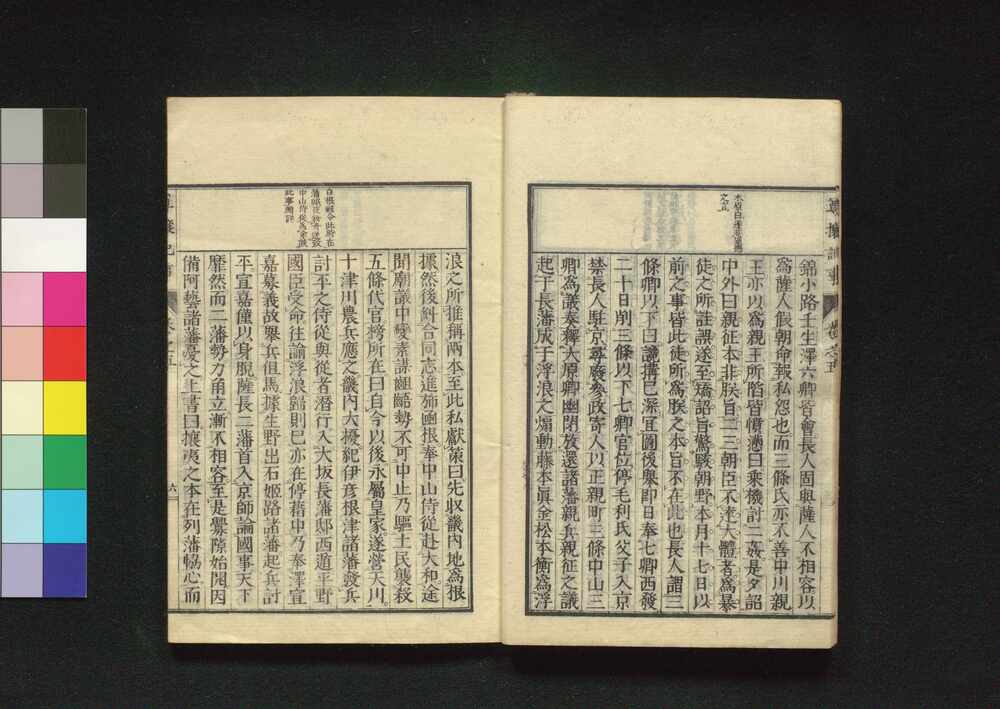 錦小路壬生澤六卿皆會長人固與薩人不相容以
爲薩人假朝命報私怨也而三條氏亦不善中川親
王亦以爲親王所陷皆憤懣曰乘機討二姦是夕詔
中外曰親征本非朕旨二三朝臣不達大體者爲暴
徒之所詿誤遂至矯詔旨驚駭朝野本月十七日以
前之事皆此徒所爲朕之本旨不在此也長人謂三
條卿以下曰讒搆已深宜圖後擧即日奉七卿西發
二十日削三條以下七卿官位停毛利氏父子入京
禁長人駐京尋廢參政寄人以正親町三條中山三
卿爲議奏釋大原卿幽閉放還諸藩親兵親征之議
起于長藩成于浮浪之煽動藤本眞金松本衡爲浮
浪之所推稱兩本至此私獻策曰先収畿内地爲根
據然後糾合同志進殪函根奉中山侍從赴大和途
聞廟議中變素謀齟齬勢不可中止乃驅土民襲殺
五條代官榜所在曰自今以後永屬皇家遂營天川
十津川農兵應之畿内大擾紀伊彦根津諸藩發兵
討平之侍從與從者潜行入大坂長藩邸西遁平野
國臣受命往諭浮浪歸則已亦在停藉中乃奉澤宣
嘉募義故擧兵但馬據生野出石姬路諸藩起兵討
平宣嘉僅以身脫薩長二藩首入京師論國事天下
靡然而二藩勢力角立漸不相容至是釁隙始開因
備阿藝諸藩憂之上書曰攘夷之本在列藩協心而
六